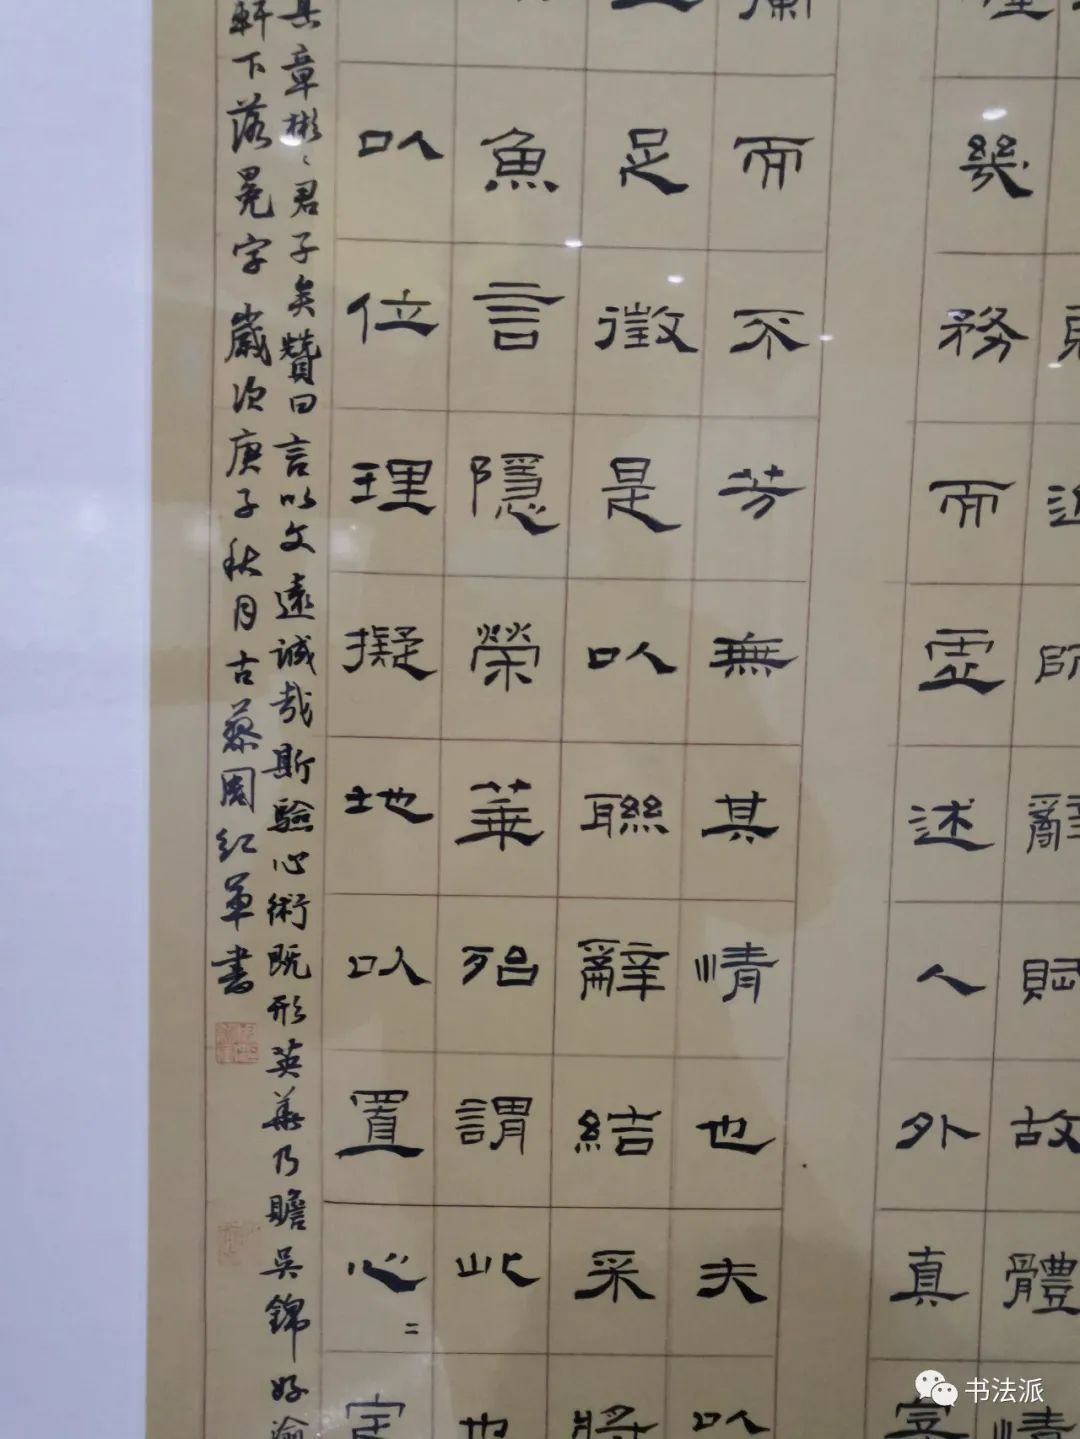 近師辭賦故體情
幾務而虛述人外真宰
蘭而不芳無其情也夫以
足徵是以聯辭結采將
魚言隱榮華殆謂此也
以位理擬地以置心二定
其章彬〻君子矣贊曰言以文遠誠哉斯驗心術既形英華乃贍吳錦好渝
軒下落冕字 歲次庚子秋月古蔡周紅軍書
书法派